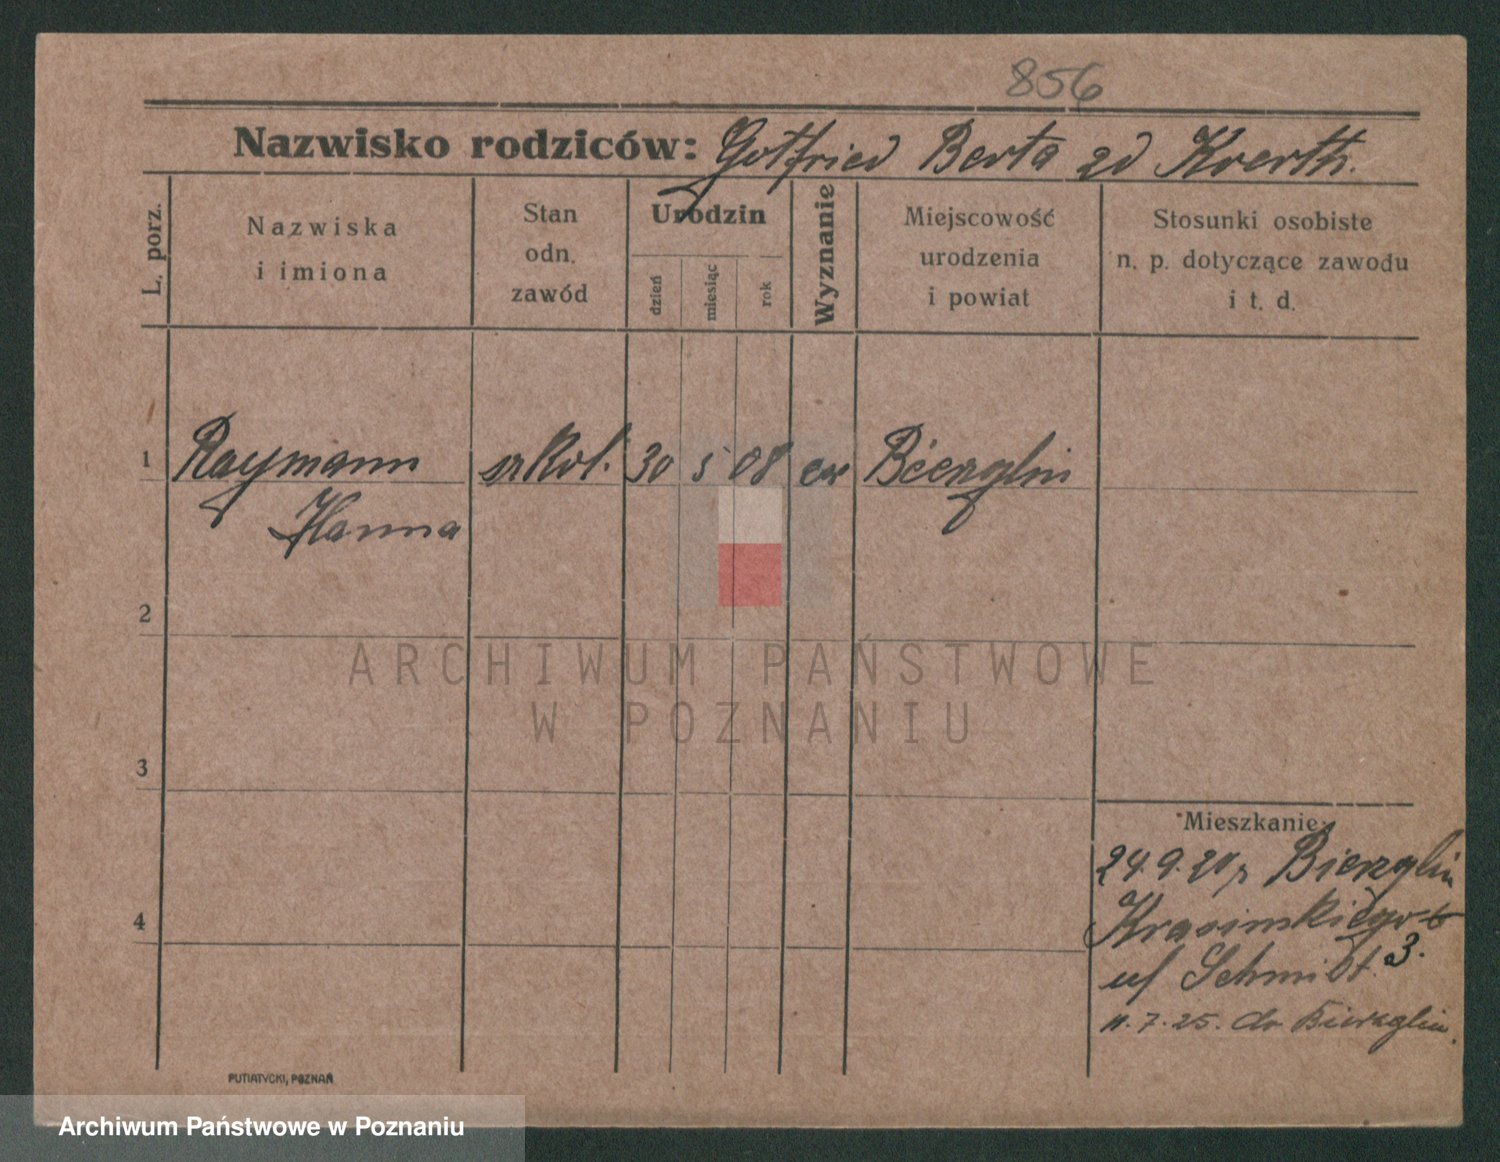 856
Nazwisko rodziców: Gotfried Berta zd Krerth.
L. porz.
Nazwiska
i imiona
Stan
odn.
zawód
Urodzin
dzień
miesiąc
rok
Wyznanie
Miejscowość
urodzenia
i powiat
Stosunki osobiste
n. p. dotyczące zawodu
i t. d.
1 Raymann szkol. 30 5 08 ew Bierzglin
Hanna
2
ARCHIWUM PAŃSTWOWE
W POZNANIU
3
Mieszkanie:
24.9.20 Bierzglin
4 Krasinskiego
3.
u/ Schmidt.
11.7.25. do Bierzglin.
PUTIATYCKI, POZNAŃ
Archiwum Państwowe w Poznaniu